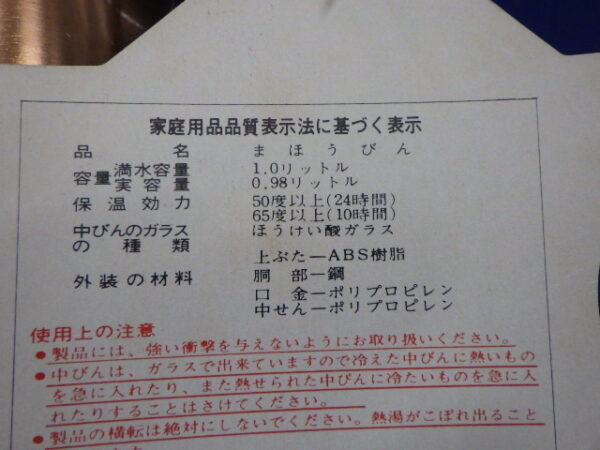 家庭用品品質表示法に基づく表示
品名 まほうびん
容量 満水容量 1.0リットル
実容量 0.98リットル
保温効力 50度以上(24時間)
65度以上(10時間)
中びんのガラスの種類 ほうけい酸ガラス
外装の材料 上ぶた―ABS樹脂
胴部―鋼
口金―ポリプロピレン
中せん―ポリプロピレン
使用上の注意
●製品には、強い衝撃を与えないようにお取り扱いください。
●中びんは、ガラスで出来ていますので冷えた中びんに熱いもの
を急に入れたり、また熱せられた中びんに冷たいものを急に入
れたりすることはさけてください。
●製品の横転は絶対にしないでください。熱湯がこぼれ出ること